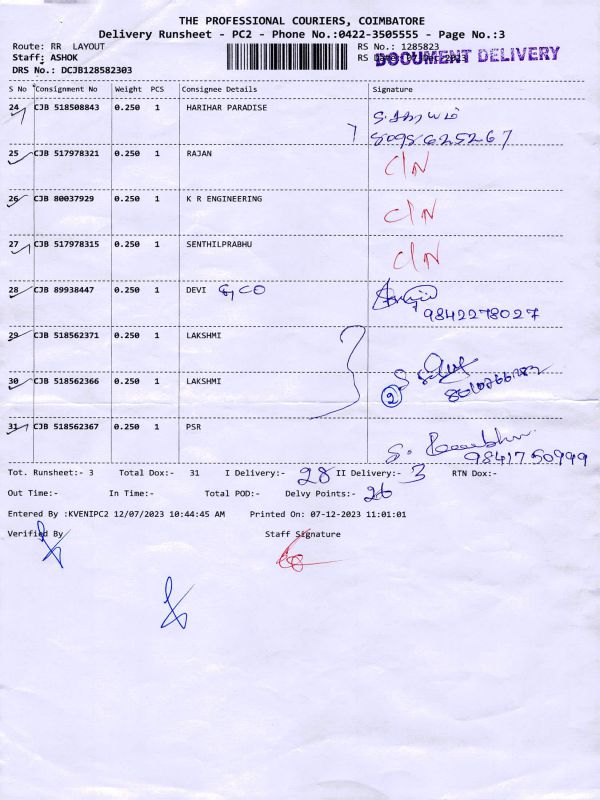 THE PROFESSIONAL COURIERS, COIMBATORE
Delivery Runsheet - PC2 - Phone No.:0422-3505555 - Page No.:3
Route: RR LAYOUT
RS No.: 1285823
Staff: ASHOK
RS Date: 07-Dec-2023
DOCUMENT DELIVERY
DRS No.: DCJB128582303
S No Consignment No Weight PCS Consignee Details Signature
24 CJB 518508843 0.250 1 HARIHAR PARADISE
8098625267
25 CJB 517978321 0.250 1 RAJAN C/N
26 CJB 80037929 0.250 1 K R ENGINEERING C/N
27 CJB 517978315 0.250 1 SENTHILPRABHU C/N
28 CJB 89938447 0.250 1 DEVI & CO
9842278027
29 CJB 518562371 0.250 1 LAKSHMI
30 CJB 518562366 0.250 1 LAKSHMI 2
31 CJB 518562367 0.250 1 PSR
9841750999
Tot. Runsheet:- 3 Total Dox:- 31 I Delivery:- 28 II Delivery:- 3 RTN Dox:-
Out Time:- In Time:- Total POD:- Delvy Points:- 26
Entered By :KVENIPC2 12/07/2023 10:44:45 AM Printed On: 07-12-2023 11:01:01
Verified By Staff Signature